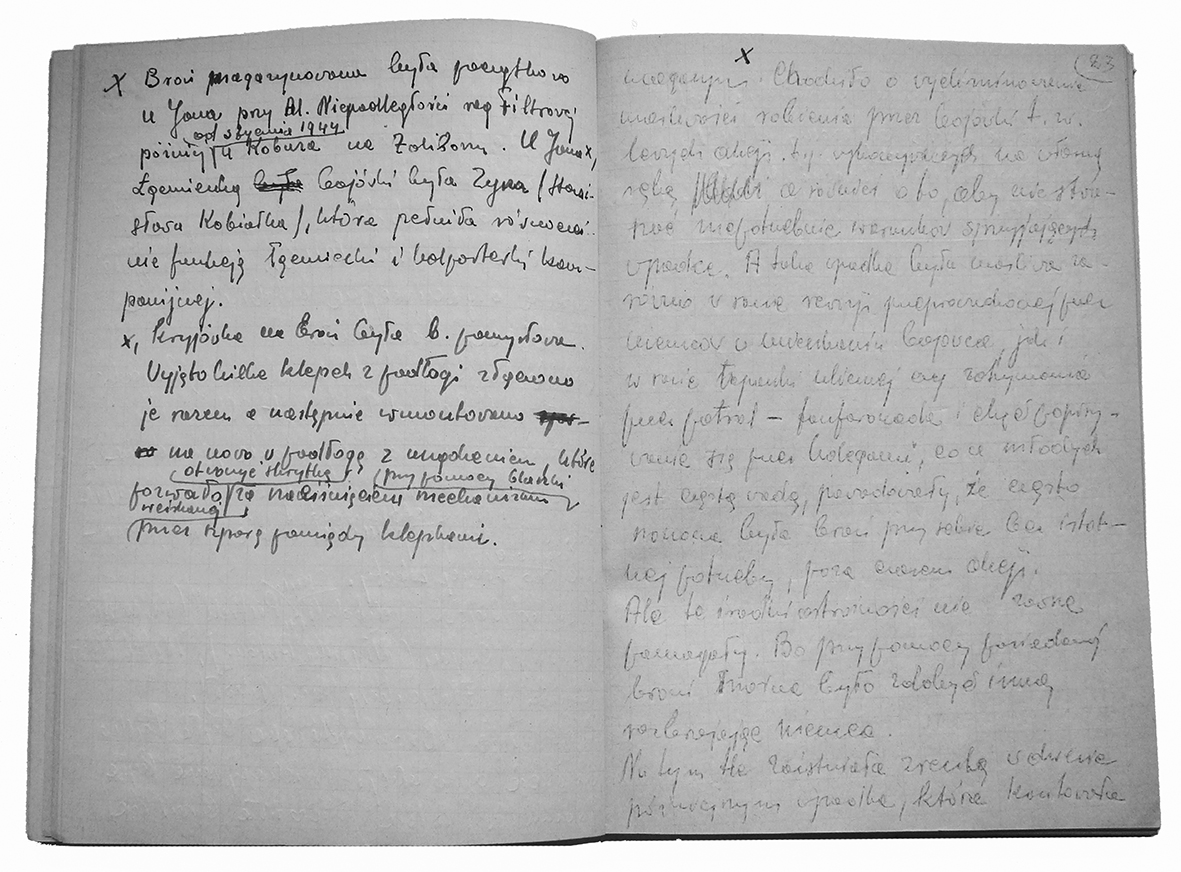 x Broń magazynowana była początkowo
u Jona przy Al. Niepodległości róg Filtrowej
od stycznia 1944
później u Kobuza na Żoliborzu. U Jona x,
Łączniczką była bojówki była Zyna /Stani-
sława Kobiałka/, która pełniła równocześ-
nie funkcję łączniczki i kolporterki kom-
panijnej.
x, Kryjówka na broń była b. pomysłowa.
Wyjęto kilka klepek z podłogi złączono
je razem a następnie wmontowano
na nowo w podłogę z urządzeniem, które
otwarcie skrytki przy pomocy blaszki
pozwalało za naciśnięciem mechanizmu
wciskanej
przez szparę pomiędzy klepkami.
x
83
magazyn. Chodziło o wyeliminowanie
możliwości robienia przez bojówki t.zw.
lewych akcji t.j. wykonywanych na własną
rękę a również o to, aby nie stwa-
rzać niepotrzebnie warunków sprzyjających
wpadce. A taka wpadka była możliwa za-
równo w razie rewizji przeprowadzonej przez
niemców w mieszkaniu bojowca, jak i
w razie łapanki ulicznej czy zatrzymania
przez patrol – fanfaronada i chęć popisy-
wania się przed kolegami, co u młodych
jest częstą wadą, powodowały, że często
noszona była broń przy sobie bez istot-
nej potrzeby, poza czasem akcji.
Ale te środki ostrożności nie zawsze
pomagały. Bo przy pomocy posiadanej
broni można było zdobyć inną
rozbrajając niemca.
Na tym tle zaistniała zresztą
wpadka, która kosztowała